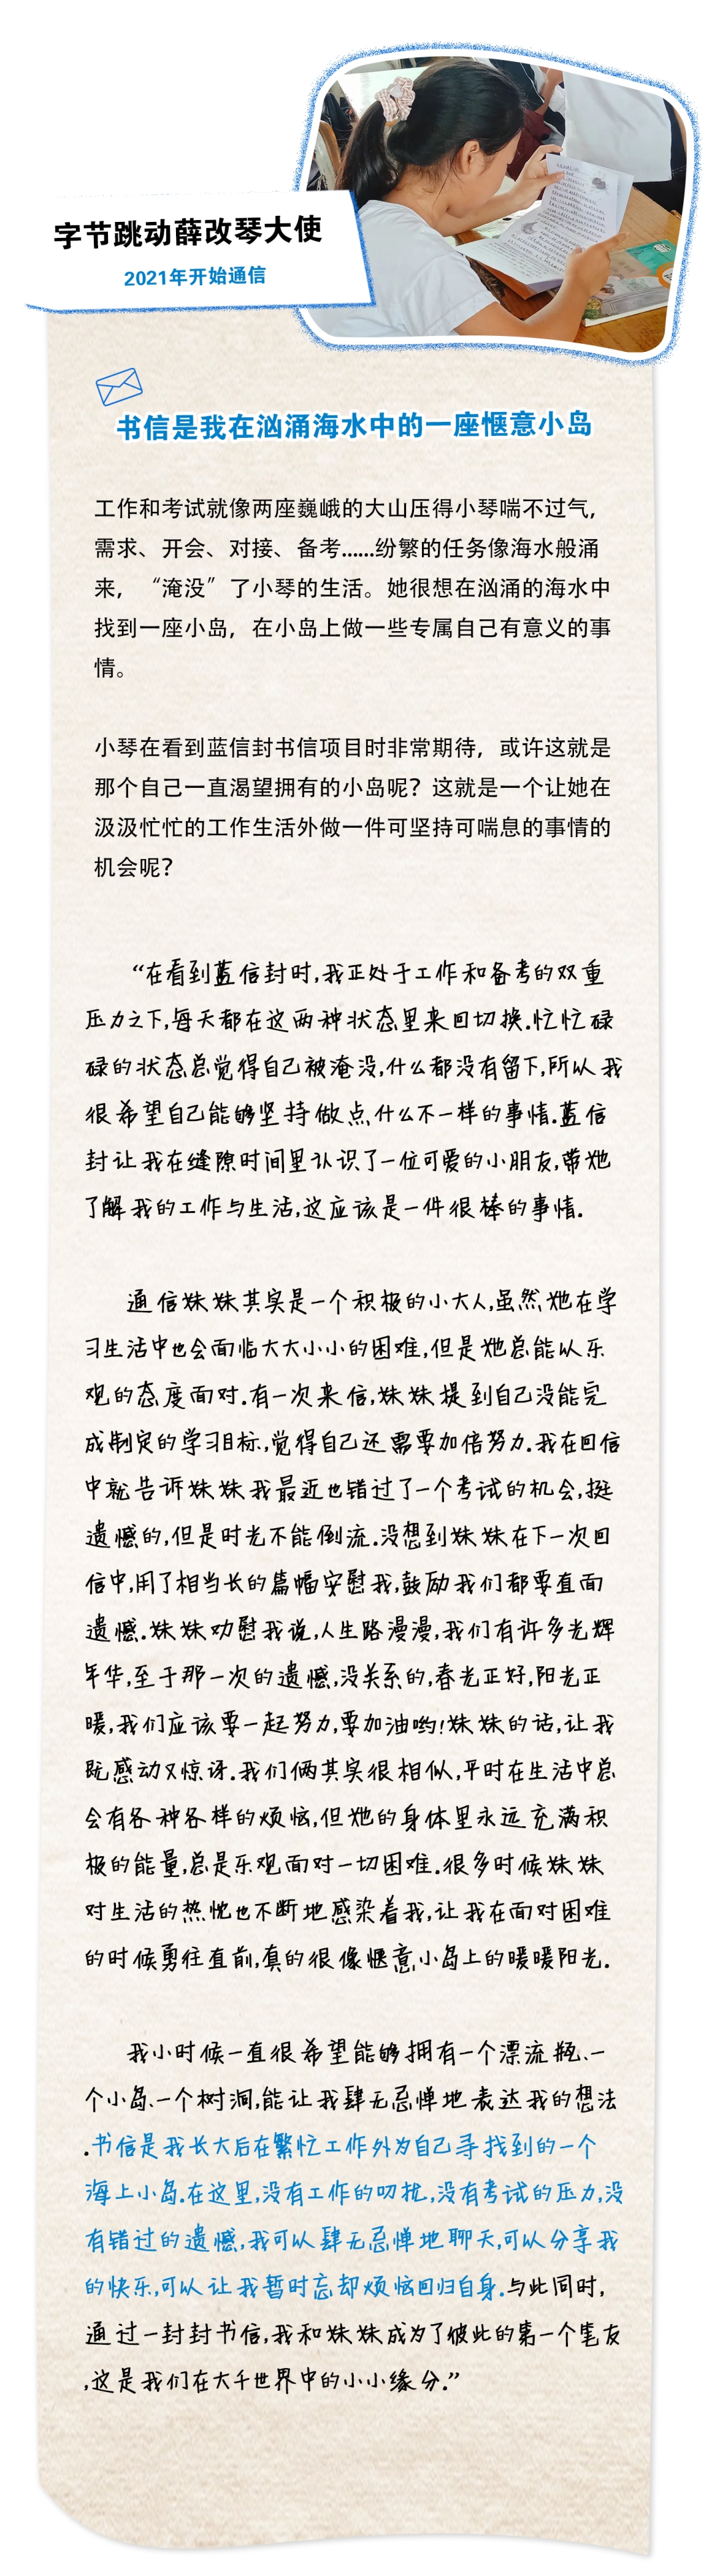 字节跳动薛改琴大使
2021年开始通信
书信是我在汹涌海水中的一座惬意小岛
工作和考试就像两座巍峨的大山压得小琴喘不过气，
需求、开会、对接、备考……纷繁的任务像海水般涌
来，“淹没”了小琴的生活。她很想在汹涌的海水中
找到一座小岛，在小岛上做一些专属自己有意义的事
情。
小琴在看到蓝信封书信项目时非常期待，或许这就是
那个自己一直渴望拥有的小岛呢？这就是一个让她在
汲汲忙忙的工作生活外做一件可坚持可喘息的事情的
机会呢？
“在看到蓝信封时,我正处于工作和备考的双重
压力之下,每天都在这两种状态里来回切换.忙忙碌
碌的状态总觉得自己被淹没,什么都没有留下,所以我
很希望自己能够坚持做点什么不一样的事情.蓝信
封让我在缝隙时间里认识了一位可爱的小朋友,带她
了解我的工作与生活,这应该是一件很棒的事情.
通信妹妹其实是一个积极的小大人,虽然她在学
习生活中也会面临大大小小的困难,但是她总能以乐
观的态度面对.有一次来信,妹妹提到自己没能完
成制定的学习目标,觉得自己还需要加倍努力.我在回信
中就告诉妹妹我最近也错过了一个考试的机会,挺
遗憾的,但是时光不能倒流.没想到妹妹在下一次回
信中,用了相当长的篇幅安慰我,鼓励我们都要直面
遗憾.妹妹劝慰我说,人生路漫漫,我们有许多光辉
年华,至于那一次的遗憾,没关系的,春光正好,阳光正
暖,我们应该要一起努力,要加油哟!妹妹的话,让我
既感动又惊讶.我们俩其实很相似,平时在生活中总
会有各种各样的烦恼,但她的身体里永远充满积
极的能量,总是乐观面对一切困难.很多时候妹妹
对生活的热忱也不断地感染着我,让我在面对困难
的时候勇往直前,真的很像惬意小岛上的暖暖阳光.
我小时候一直很希望能够拥有一个漂流瓶、一
个小岛、一个树洞,能让我肆无忌惮地表达我的想法
.书信是我长大后在繁忙工作外为自己寻找到的一个
海上小岛.在这里,没有工作的叨扰,没有考试的压力,没
有错过的遗憾,我可以肆无忌惮地聊天,可以分享我
的快乐,可以让我暂时忘却烦恼回归自身.与此同时,
通过一封封书信,我和妹妹成为了彼此的第一个笔友
,这是我们在大千世界中的小小缘分.”